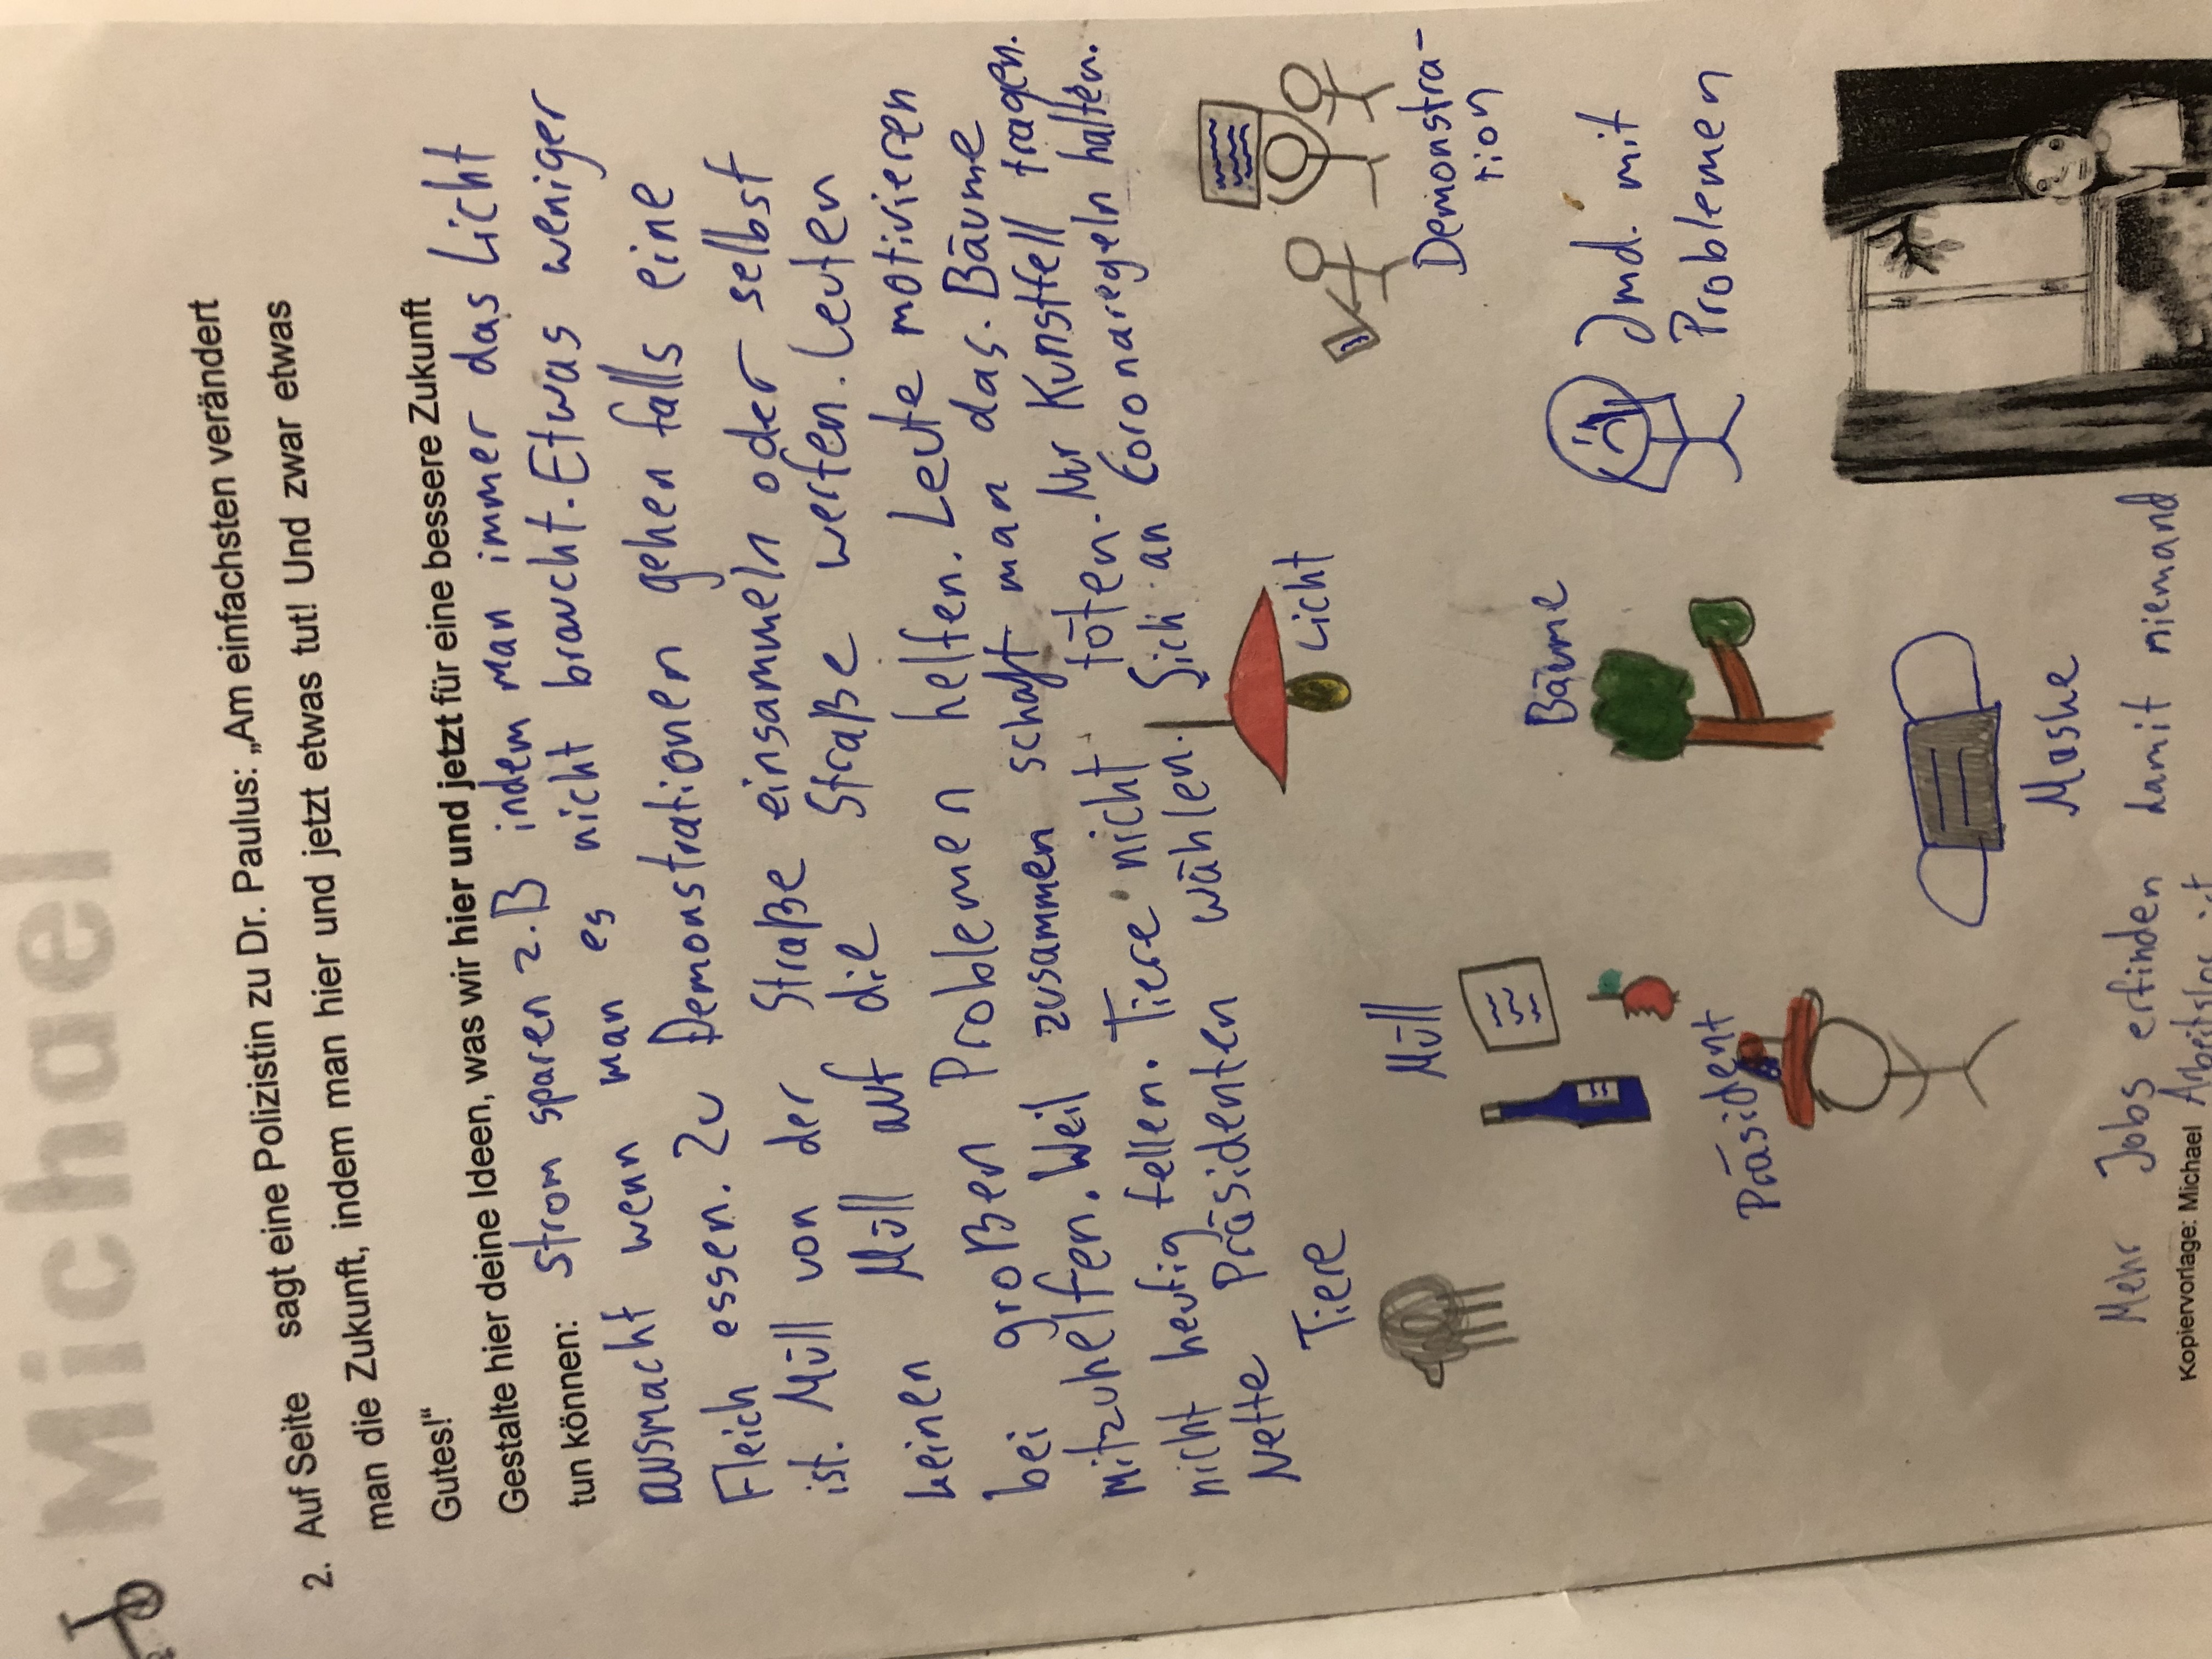 Michael
2. Auf Seite sagt eine Polizistin zu Dr. Paulus: „Am einfachsten verändert
man die Zukunft, indem man hier und jetzt etwas tut! Und zwar etwas
Gutes!“
Gestalte hier deine Ideen, was wir hier und jetzt für eine bessere Zukunft
tun können: Strom sparen z.B indem man immer das Licht
ausmacht wenn man es nicht braucht. Etwas weniger
Fleich essen. Zu Demonstrationen gehen falls eine
ist. Müll von der Straße einsammeln oder selbst
keinen Müll auf die Straße werfen. Leuten
bei großen Problemen helfen. Leute motivieren
mitzuhelfen. Weil zusammen schafft man das. Bäume
nicht heufig fellen. Tiere nicht töten. Nur Kunstfell tragen.
Nette Präsidenten wählen. Sich an Coronaregeln halten.
Tiere
Licht
Demonstra-
tion
Müll
Bäume
Jmd. mit
Problemen
Präsident
Maske
Mehr Jobs erfinden damit niemand
Kopiervorlage: Michael